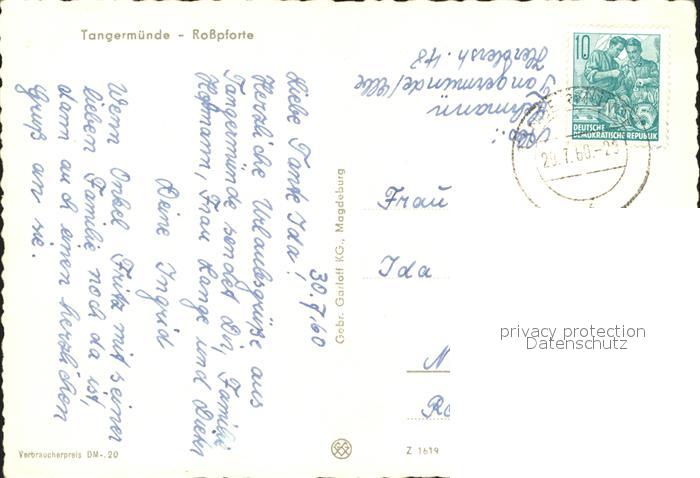 Tangermünde - Roßpforte
30.7.60
Liebe Tante Ida!
Herzliche Urlaubsgrüße aus
Tangermünde sendet Dir, Familie
Hofmann, Frau Lange und Dieter
Deine Ingrid
Wenn Onkel Fritz mit seiner
lieben Familie noch da ist,
dann auch einen herzlichen
Gruß an sie.
Verbraucherpreis DM -.20
Gebr. Garloff KG., Magdeburg
Z 1619
Lehmann
Tangermünde/Elbe
48
10
5
DEUTSCHE
DEMOKRATISCHE REPUBLIK
29.7.60.-23
Frau
Ida
N
Ro
privacy protection
Datenschutz